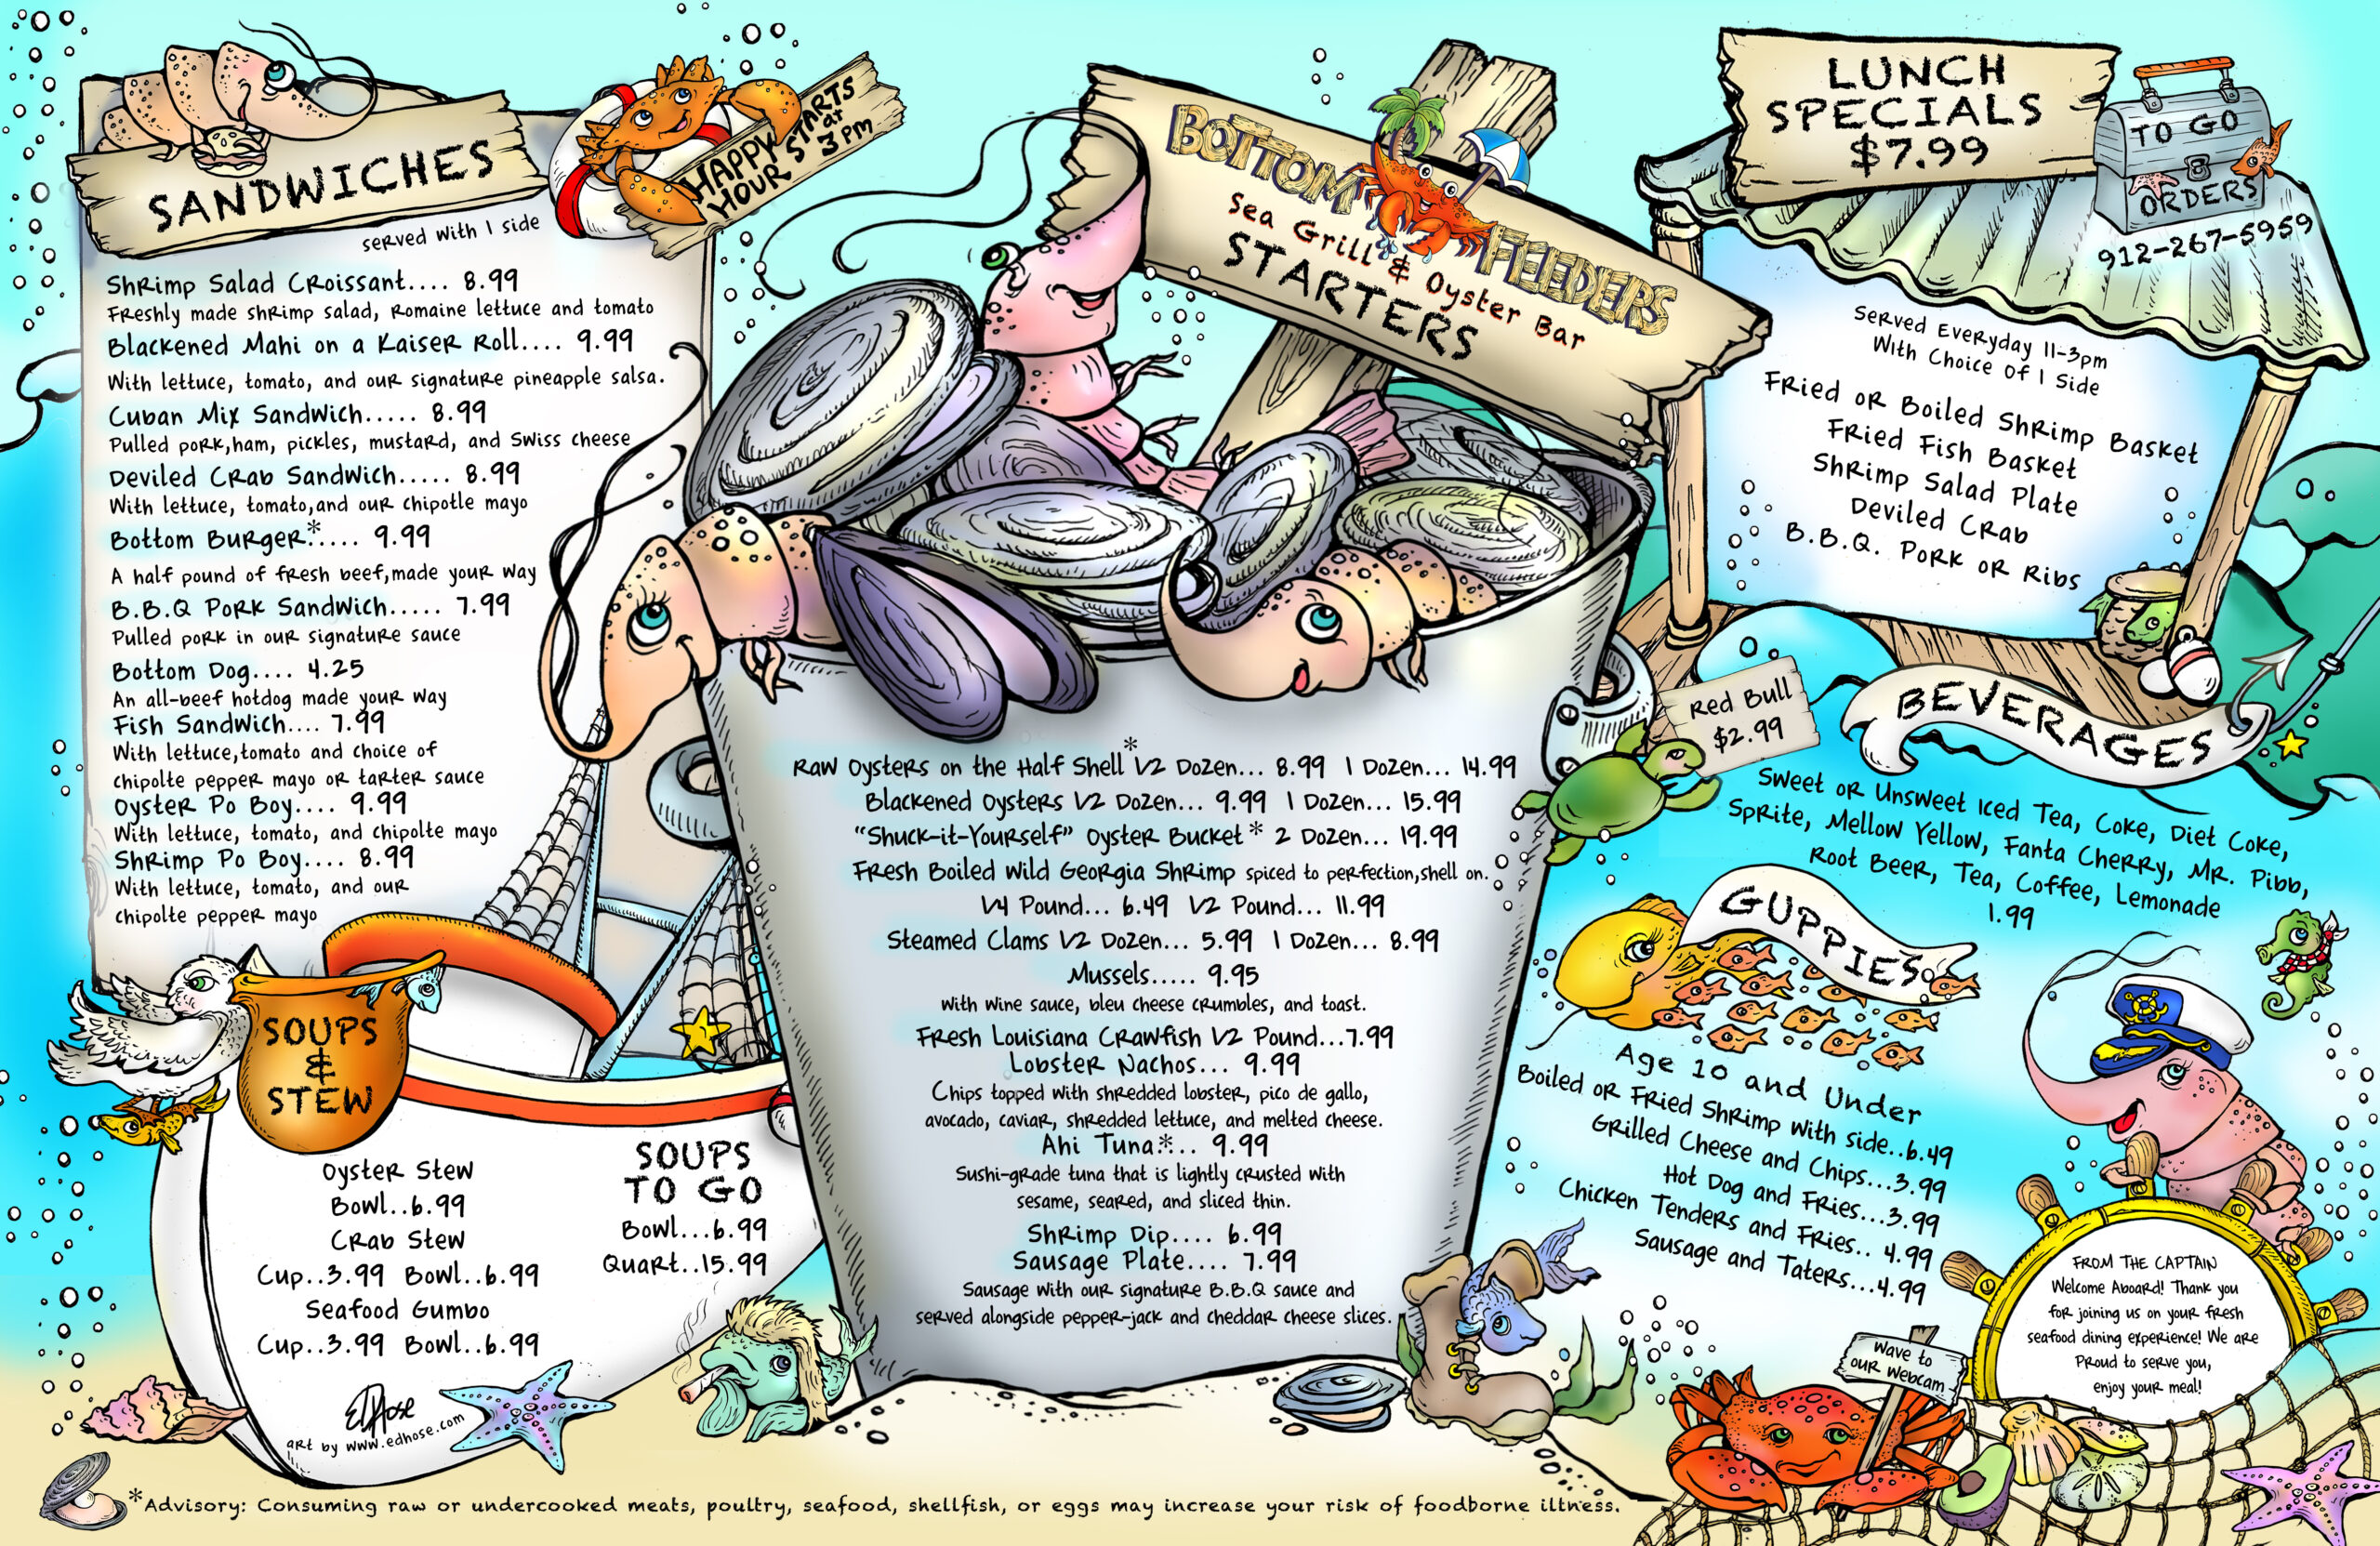 SANDWICHES
served with 1 side
HAPPY HOUR STARTS at 3 PM
Shrimp Salad Croissant.... 8.99
Freshly made shrimp salad, Romaine lettuce and tomato
Blackened Mahi on a Kaiser Roll.... 9.99
With lettuce, tomato, and our signature pineapple salsa.
Cuban Mix Sandwich..... 8.99
Pulled pork,ham, pickles, mustard, and Swiss cheese
Deviled Crab Sandwich..... 8.99
With lettuce, tomato,and our chipotle mayo
Bottom Burger*..... 9.99
A half pound of fresh beef,made your way
B.B.Q Pork Sandwich..... 7.99
Pulled pork in our signature sauce
Bottom Dog.... 4.25
An all-beef hotdog made your way
Fish Sandwich.... 7.99
With lettuce,tomato and choice of
chipolte pepper mayo or tarter sauce
Oyster Po Boy.... 9.99
With lettuce, tomato, and chipolte mayo
Shrimp Po Boy.... 8.99
With lettuce, tomato, and our
chipolte pepper mayo
SOUPS
&
STEW
Oyster Stew
Bowl..6.99
Crab Stew
Cup..3.99 Bowl..6.99
Seafood Gumbo
Cup..3.99 Bowl..6.99
SOUPS
TO GO
Bowl...6.99
Quart..15.99
EdHose
art by www.edhose.com
BOTTOM FEEDERS
Sea Grill & Oyster Bar
STARTERS
Raw Oysters on the Half Shell* 1/2 Dozen... 8.99 1 Dozen... 14.99
Blackened Oysters 1/2 Dozen... 9.99 1 Dozen... 15.99
"Shuck-it-Yourself" Oyster Bucket* 2 Dozen... 19.99
Fresh Boiled Wild Georgia Shrimp spiced to perfection,shell on.
1/4 Pound... 6.49 1/2 Pound... 11.99
Steamed Clams 1/2 Dozen... 5.99 1 Dozen... 8.99
Mussels..... 9.95
with wine sauce, bleu cheese crumbles, and toast.
Fresh Louisiana Crawfish 1/2 Pound...7.99
Lobster Nachos... 9.99
Chips topped with shredded lobster, pico de gallo,
avocado, caviar, shredded lettuce, and melted cheese.
Ahi Tuna*... 9.99
Sushi-grade tuna that is lightly crusted with
sesame, seared, and sliced thin.
Shrimp Dip.... 6.99
Sausage Plate.... 7.99
Sausage with our signature B.B.Q sauce and
served alongside pepper-jack and cheddar cheese slices.
LUNCH
SPECIALS
$7.99
TO GO
ORDERS
912-267-5959
Served Everyday 11-3pm
With Choice Of 1 Side
Fried or Boiled Shrimp Basket
Fried Fish Basket
Shrimp Salad Plate
Deviled Crab
B.B.Q. Pork or Ribs
Red Bull
$2.99
BEVERAGES
Sweet or Unsweet Iced Tea, Coke, Diet Coke,
Sprite, Mellow Yellow, Fanta Cherry, Mr. Pibb,
Root Beer, Tea, Coffee, Lemonade
1.99
GUPPIES
Age 10 and Under
Boiled or Fried Shrimp with side..6.49
Grilled Cheese and Chips...3.99
Hot Dog and Fries...3.99
Chicken Tenders and Fries.. 4.99
Sausage and Taters...4.99
FROM THE CAPTAIN
Welcome Aboard! Thank you
for joining us on your fresh
seafood dining experience! We are
Proud to serve you,
enjoy your meal!
Wave to
our webcam
*Advisory: Consuming raw or undercooked meats, poultry, seafood, shellfish, or eggs may increase your risk of foodborne illtness.